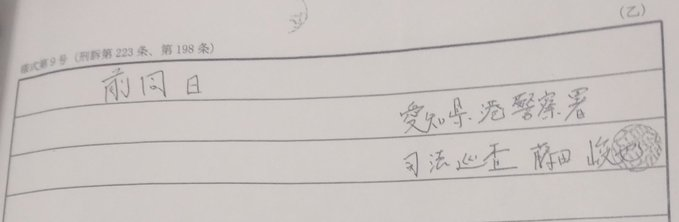 (乙)
様式第9号(刑訴第223条、第198条)
前同日
愛知県港警察署
司法巡査 藤田